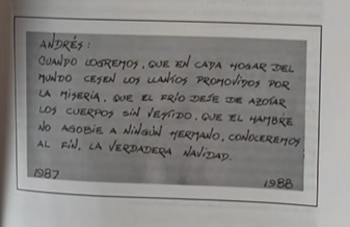 ANDRÉS:
CUANDO LOGREMOS, QUE EN CADA HOGAR DEL
MUNDO CESEN LOS LLANTOS PROMOVIDOS POR
LA MISERIA, QUE EL FRÍO DEJE DE AZOTAR
LOS CUERPOS SIN VESTIDO, QUE EL HAMBRE
NO AGOBIE A NINGÚN HERMANO, CONOCEREMOS
AL FIN, LA VERDADERA NAVIDAD.
1987 1988